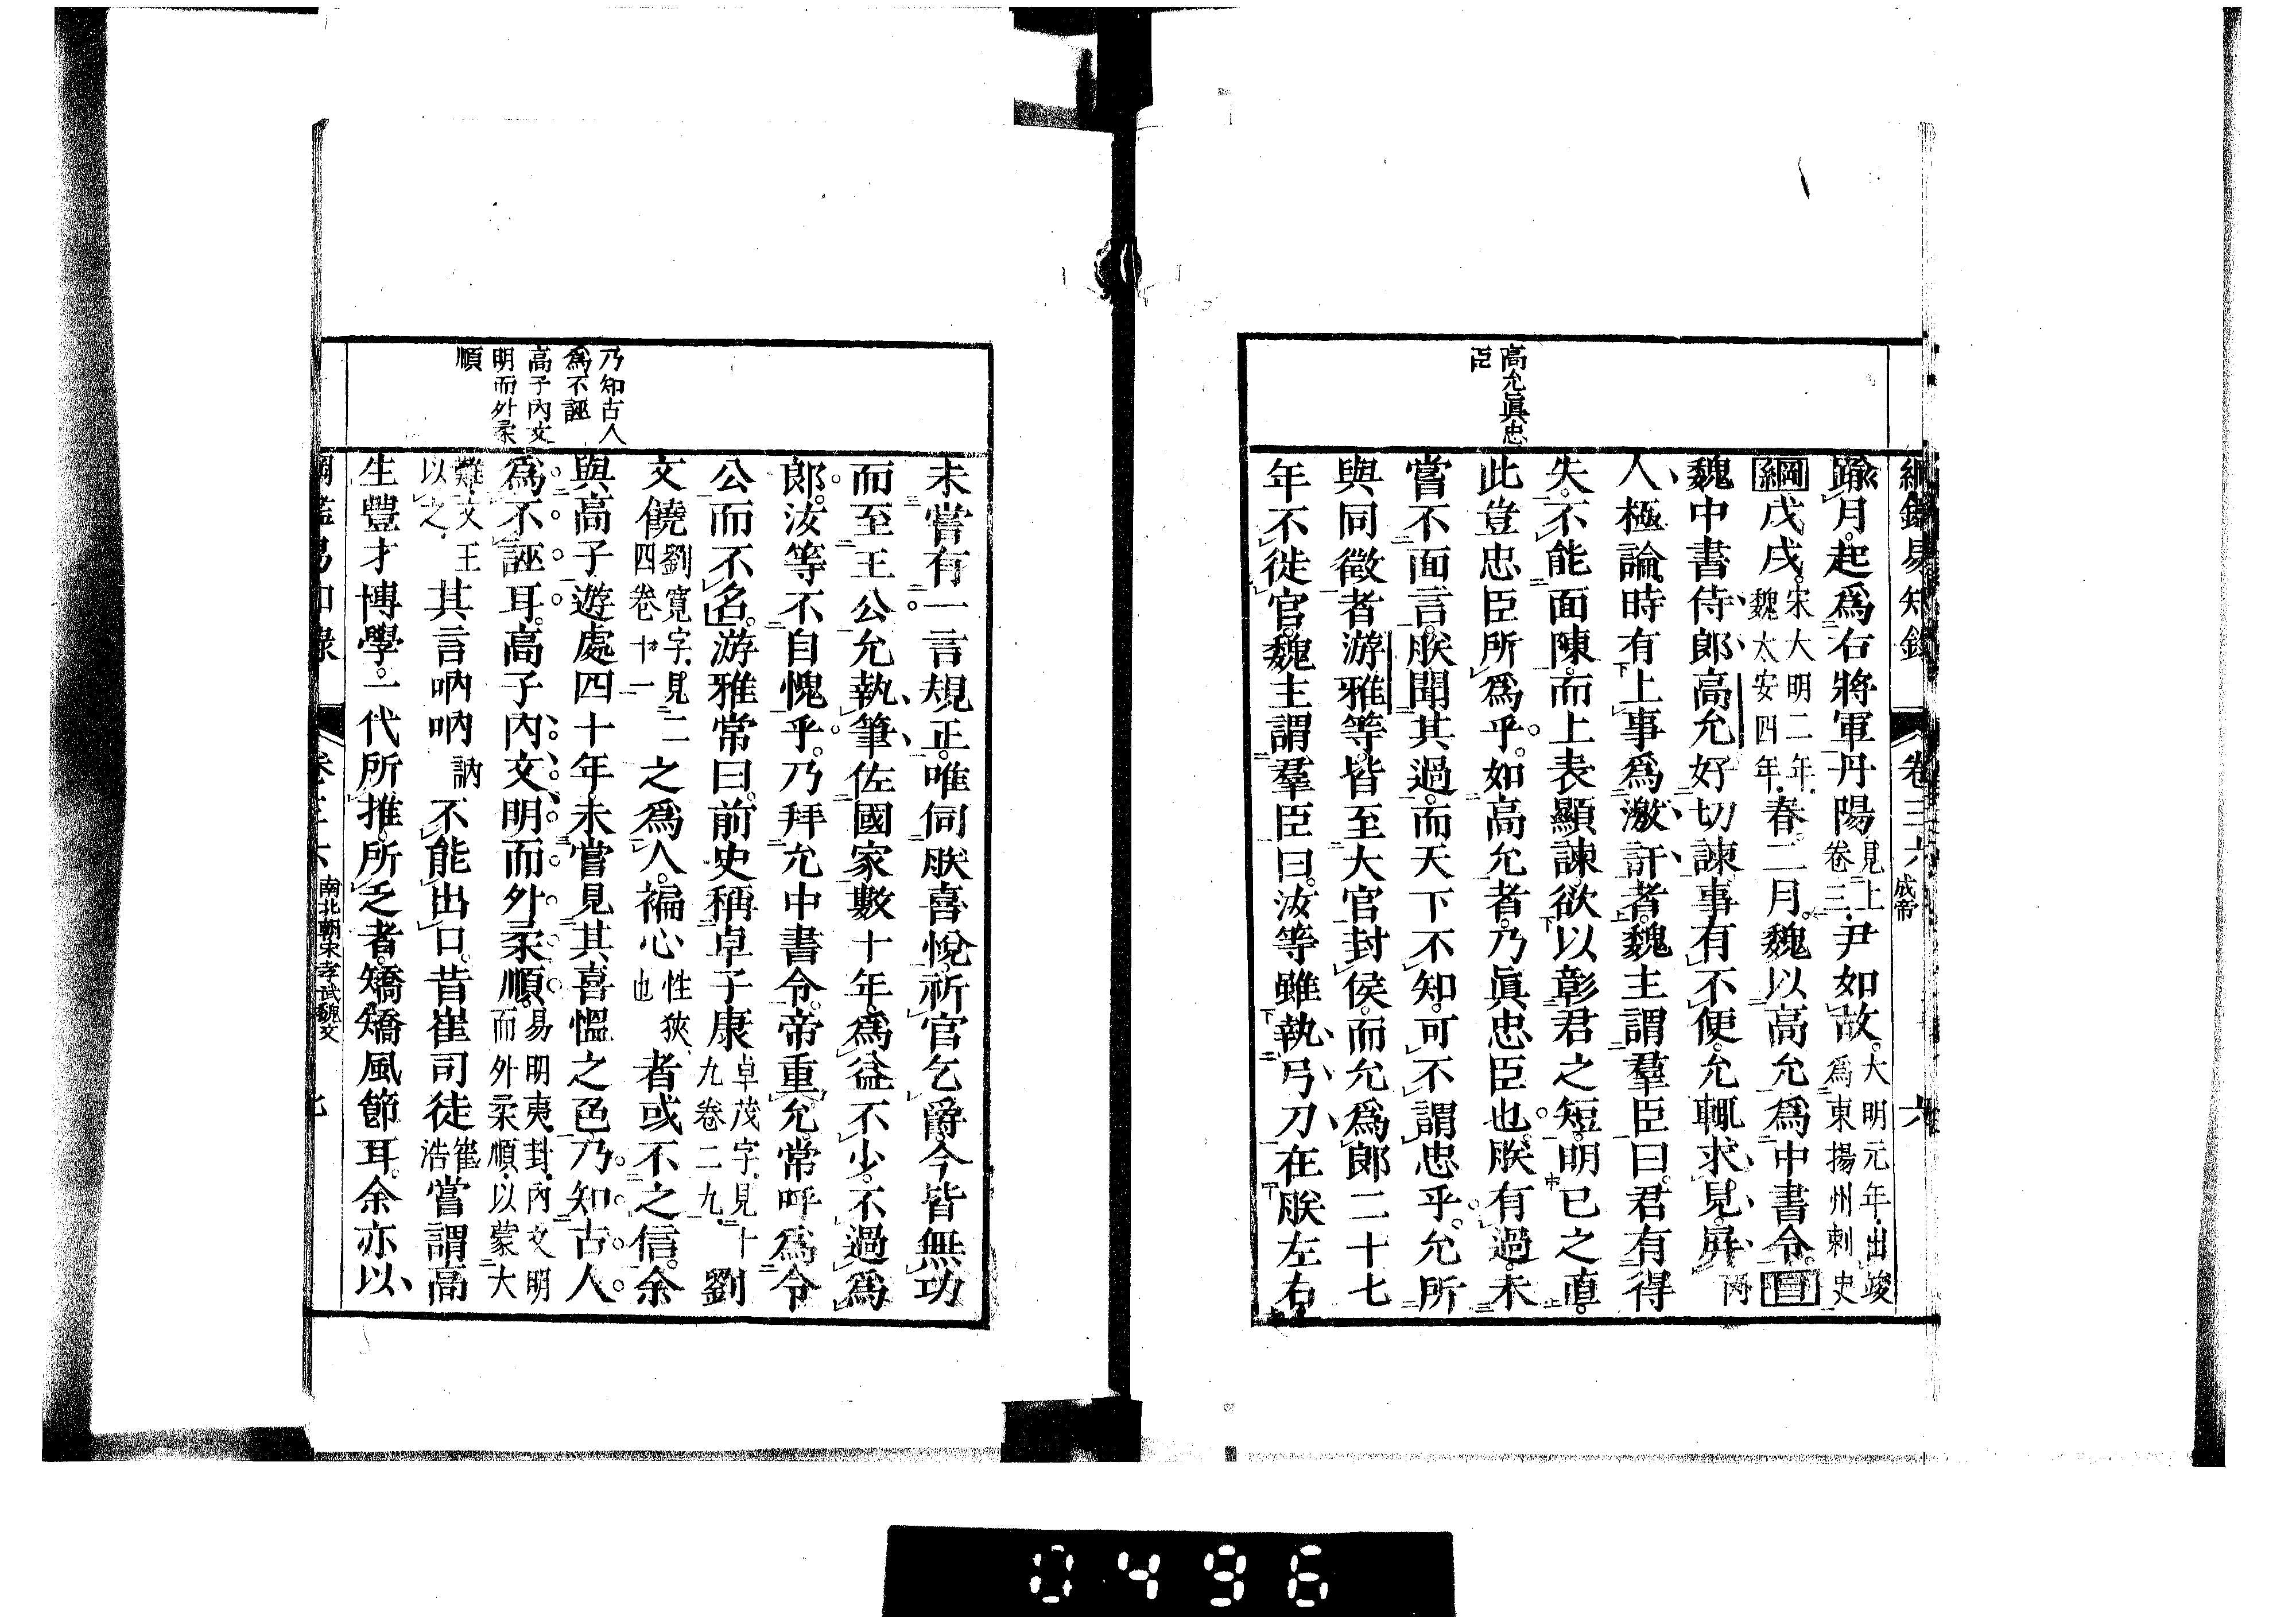 綱鑑易知錄 卷三六 成帝 六
踰月。起爲右將軍丹陽見上卷三。尹如故。大明元年。出竣爲東揚州刺史
綱戊戌。宋大明二年。魏太安四年。春。二月。魏以高允爲中書令。目
魏中書侍郎高允好切諫。事有不便。允輒求見。屛丙
人極論。時有上事爲激訐者。魏主謂羣臣曰。君有得
失。不能面陳。而上表顯諫。欲以彰君之短。明已之直。
此豈忠臣所爲乎。如高允者。乃眞忠臣也。朕有過。未
嘗不面言。朕聞其過。而天下不知。可不謂忠乎。允所
與同徵者游雅等。皆至大官封侯。而允爲郎二十七
年不徙官。魏主謂羣臣曰。汝等雖執弓刀在朕左右
高允眞忠
臣
未嘗有一言規正。唯伺朕喜悅。祈官乞爵。今皆無功
而至王公。允執筆佐國家數十年。爲益不少。不過爲
郎。汝等不自愧乎。乃拜允中書令。帝重允。常呼爲令
公而不名。游雅常曰。前史稱卓子康卓茂字。見十九卷二九。劉
文饒劉寬字。見二四卷十一之爲人。褊心性狹也者或不之信。余
與高子遊處四十年。未嘗見其喜慍之色。乃知古人
爲不誣耳。高子內文明而外柔順。易明夷。封。內文明而外柔順。以蒙大
難。文王以之。其言吶吶訥不能出口。昔崔司徒崔浩嘗謂高
生豐才博學。一代所推。所乏者。矯矯風節耳。余亦以
乃知古人
爲不誣
高子內文
明而外柔
順
綱鑑易知錄 卷三六 南北朝宋孝武魏文 七
0496